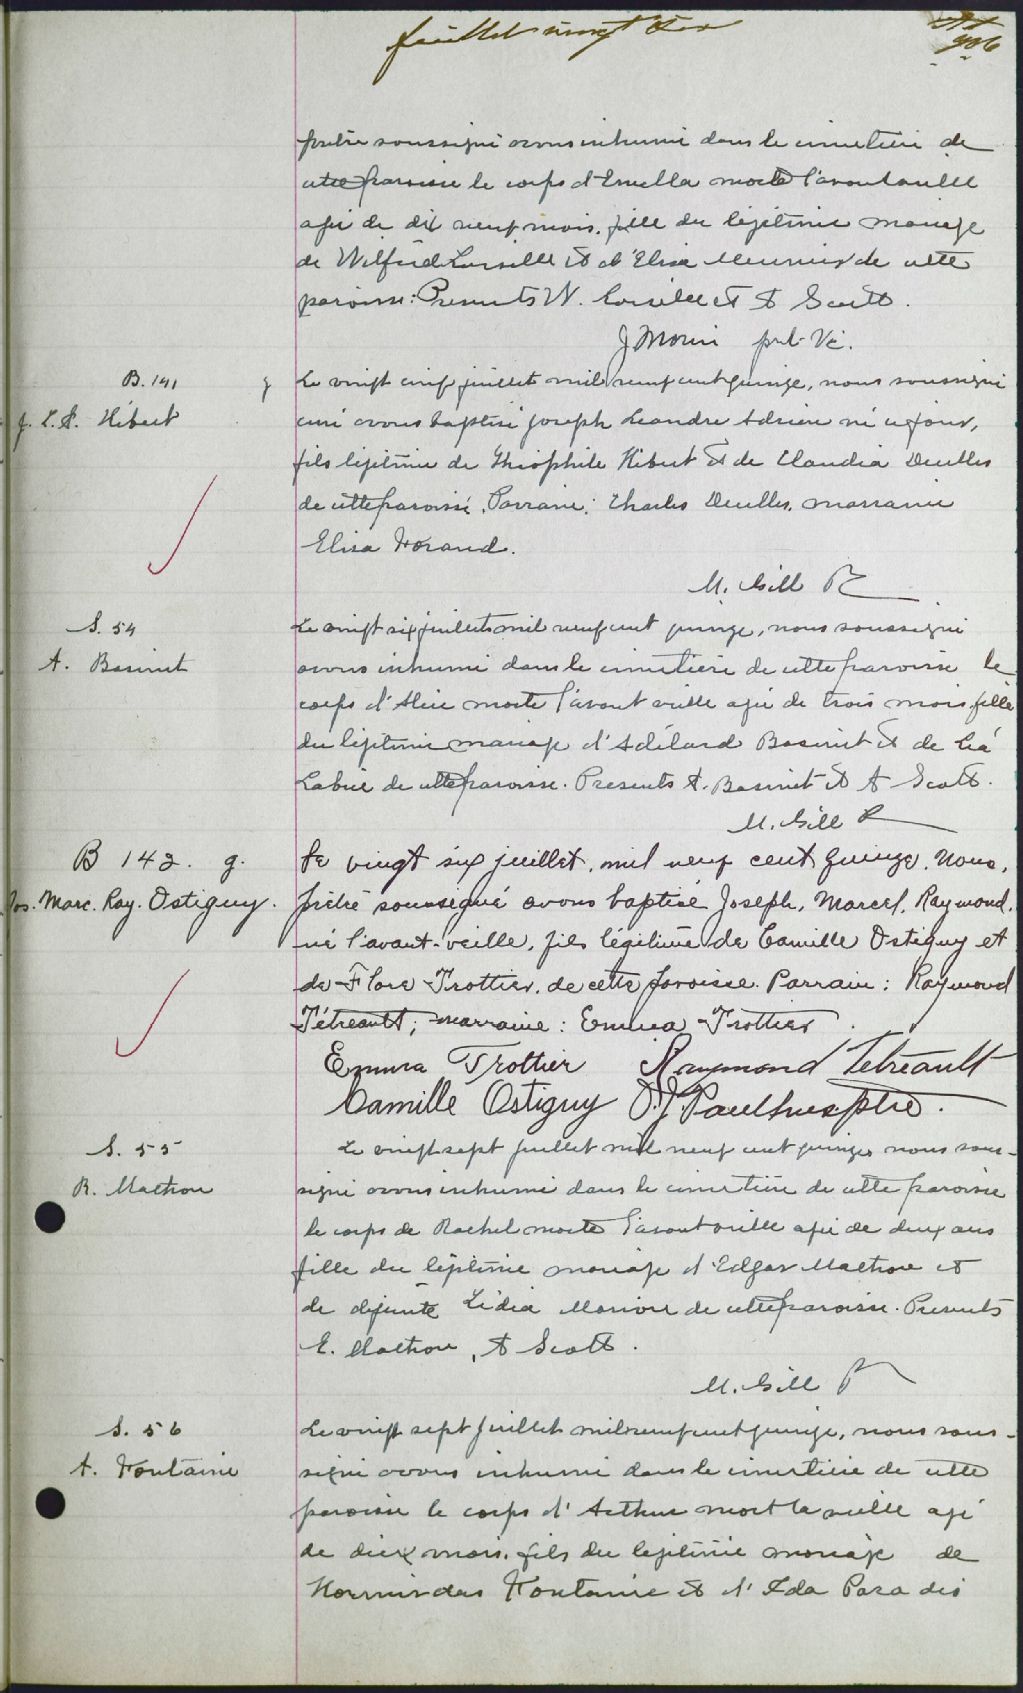 feuillet vingt
prêtre soussigné avons inhumé dans le cimetière de
cette paroisse le corps d' morte l'avant veille
agée de dix neuf mois, fille du légitime mariage
de Wilfrid Loiselle et d'Elisa Meunier de cette
paroisse: Présents W. Loiselle et A Scott.
J Morin ptr. Vic.
B. 141 g
J. L. A. Hébert
Le vingt cinq juillet mil neuf cent quinze, nous soussigné
curé avons baptisé Joseph Leandre Adrien né ce jour,
fils légitime de Théophile Hébert et de Claudia
de cette paroisse. Parrain: Charles marraine
Elisa Forand.
M. Gill P
S. 54
A. Basinet
Le vingt six juillet mil neuf cent quinze, nous soussigné
avons inhumé dans le cimetière de cette paroisse le
corps d'Alice morte l'avant veille agée de trois mois fille
du légitime mariage d'Adélard Basinet et de Léa
Labrie de cette paroisse. Présents A. Basinet et A Scott.
M. Gill P
B 142. g.
Jos. Marc. Ray. Ostiguy.
Le vingt six juillet, mil neuf cent quinze. Nous,
prêtre soussigné avons baptisé Joseph, Marcel, Raymond,
né l'avant-veille, fils légitime de Camille Ostiguy et
de Flore Trottier, de cette paroisse. Parrain: Raymond
Tétreault; marraine: Emma Trottier.
Emma Trottier Raymond Tetreault
Camille Ostiguy O. J. Paulhus ptre.
S. 55
R. Mathon
Le vingt sept juillet mil neuf cent quinze nous sous-
signé avons inhumé dans le cimetière de cette paroisse
le corps de Rachel morte l'avant veille agée de deux ans
fille du légitime mariage d'Edgar Mathon et
de défunte Lidia de cette paroisse. Présents
E. Mathon, A Scott.
M. Gill P
S. 56
A. Fontaine
Le vingt sept juillet mil neuf cent quinze, nous sous-
signé avons inhumé dans le cimetière de cette
paroisse le corps d'Arthur mort la veille agé
de dix mois, fils du légitime mariage de
Hormisdas Fontaine et d'Ida Paradis